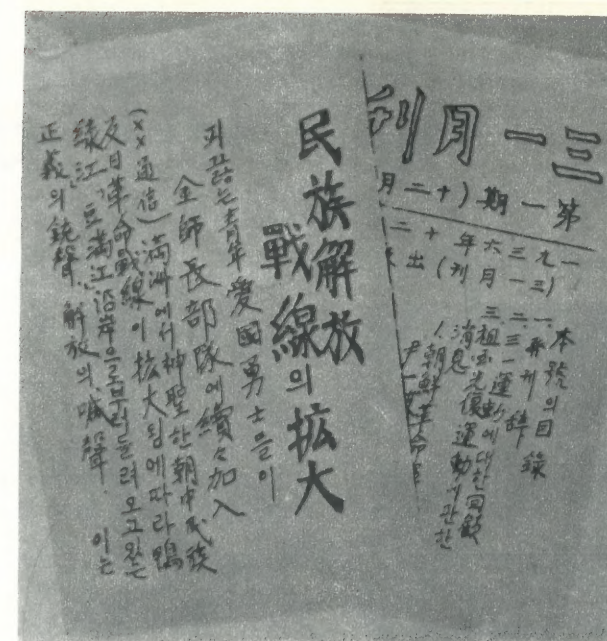 三一月刊
第一期(十二月
一九三六年十二
(三一月刊出
本號의目錄
一. 發刊辭
二. 三一運動에대한回顧
三. 祖国光復運動에관한
消息
1. 朝鮮革命
民族解放
戰線의拡大
피끓는靑年愛國勇士들이
金師長部隊에續々加入
(××通信)満洲에서神聖한朝中民族
反日革命戰線이拡大됨에따라鴨
綠江、豆滿江沿岸으로부터들려오고있는
正義의銃聲、解放의喊聲. 이는